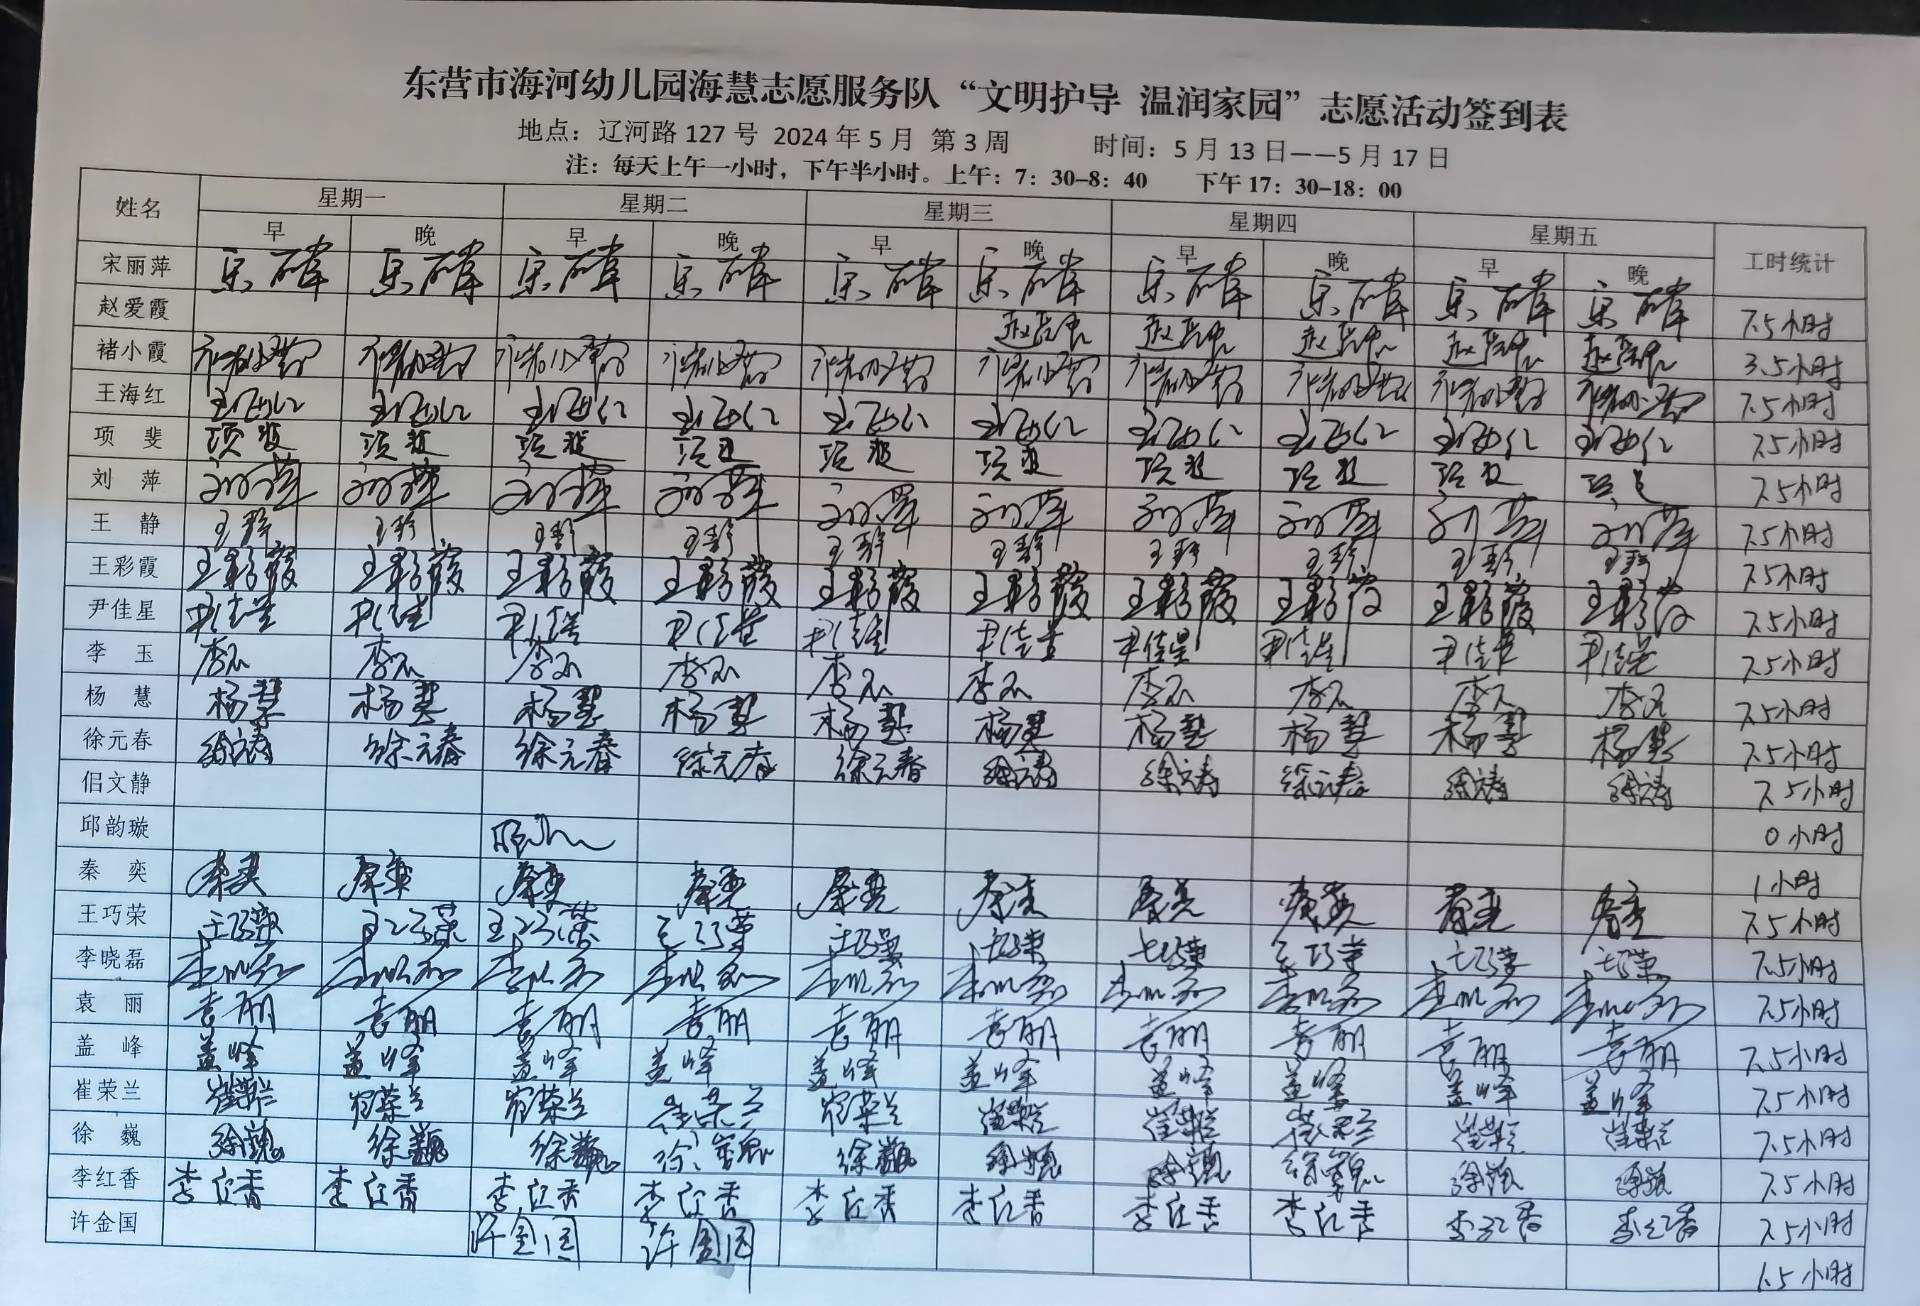 东营市海河幼儿园海慧志愿服务队“文明护导 温润家园”志愿活动签到表
地点：辽河路 127 号 2024 年 5 月 第 3 周 时间：5 月 13 日——5 月 17 日
注：每天上午一小时，下午半小时。上午：7：30-8：40 下午 17：30-18：00
姓名 星期一 星期二 星期三 星期四 星期五 工时统计
早 晚 早 晚 早 晚 早 晚 早 晚
宋丽萍 7.5小时
赵爱霞 3.5小时
褚小霞 7.5小时
王海红 王海红 王海红 王海红 王海红 王海红 王海红 王海红 王海红 王海红 王海红 7.5小时
项 斐 项斐 项斐 项斐 项斐 项斐 项斐 项斐 项斐 项斐 7.5小时
刘 萍 刘萍 刘萍 刘萍 刘萍 刘萍 刘萍 刘萍 刘萍 刘萍 刘萍 7.5小时
王 静 王静 王静 王静 王静 王静 王静 王静 王静 王静 王静 7.5小时
王彩霞 王彩霞 王彩霞 王彩霞 王彩霞 王彩霞 王彩霞 王彩霞 王彩霞 王彩霞 王彩霞 7.5小时
尹佳星 尹佳星 尹佳星 尹佳星 尹佳星 尹佳星 尹佳星 尹佳星 尹佳星 尹佳星 尹佳星 7.5小时
李 玉 李玉 李玉 李玉 李玉 李玉 李玉 李玉 李玉 李玉 李玉 7.5小时
杨 慧 杨慧 杨慧 杨慧 杨慧 杨慧 杨慧 杨慧 杨慧 杨慧 杨慧 7.5小时
徐元春 徐元春 徐元春 徐元春 徐元春 徐元春 徐元春 徐元春 徐元春 徐元春 徐元春 7.5小时
侣文静 0小时
邱韵璇 1小时
秦 奕 秦奕 秦奕 秦奕 秦奕 秦奕 秦奕 秦奕 秦奕 秦奕 秦奕 7.5小时
王巧荣 王巧荣 王巧荣 王巧荣 王巧荣 王巧荣 王巧荣 王巧荣 王巧荣 王巧荣 王巧荣 7.5小时
李晓磊 7.5小时
袁 丽 袁丽 袁丽 袁丽 袁丽 袁丽 袁丽 袁丽 袁丽 袁丽 袁丽 7.5小时
盖 峰 盖峰 盖峰 盖峰 盖峰 盖峰 盖峰 盖峰 盖峰 盖峰 盖峰 7.5小时
崔荣兰 崔荣兰 崔荣兰 崔荣兰 崔荣兰 崔荣兰 崔荣兰 崔荣兰 崔荣兰 崔荣兰 崔荣兰 7.5小时
徐 巍 徐巍 徐巍 徐巍 徐巍 徐巍 徐巍 徐巍 徐巍 徐巍 徐巍 7.5小时
李红香 李红香 李红香 李红香 李红香 李红香 李红香 李红香 李红香 李红香 李红香 7.5小时
许金国 许金国 许金国 1.5小时